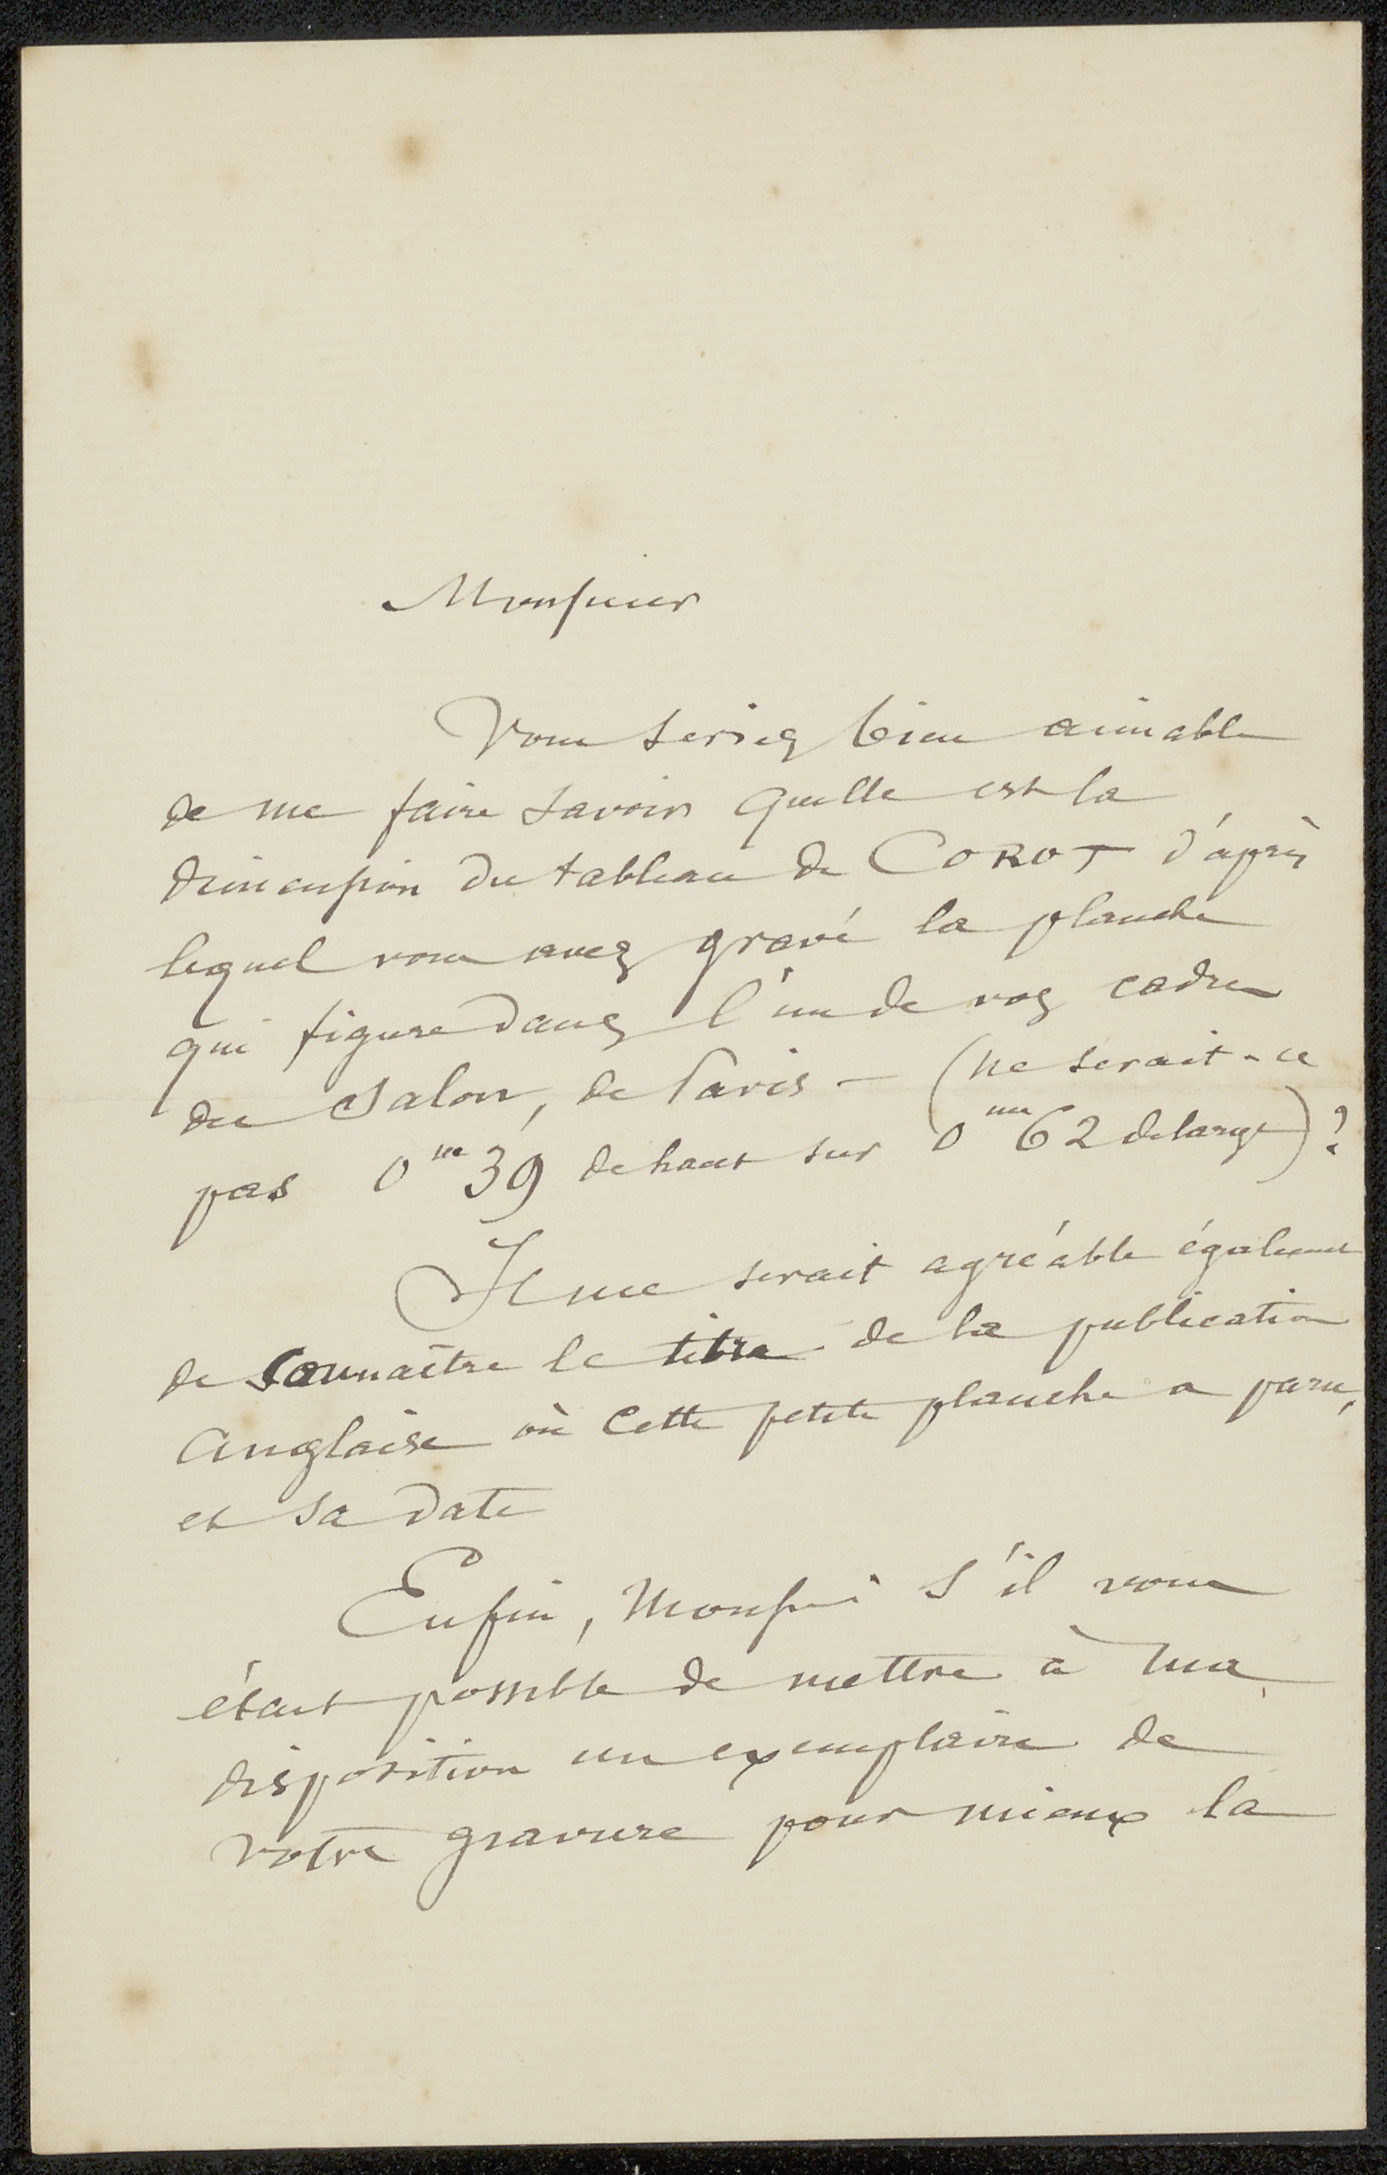 Monsieur
Vous seriez bien aimable
de me faire savoir quelle est la
dimension du tableau de COROT d'après
lequel vous avez gravé la planche
qui figure dans l'un de vos cadres
du Salon, de Paris — (ne serait-ce
pas 0m39 de haut sur 0m62 de large)?
Il me serait agréable également
de connaître le titre de la publication
anglaise où cette petite planche a paru,
et sa date
Enfin, Monsieur s'il vous
était possible de mettre à ma
disposition un exemplaire de
votre gravure pour mieux la